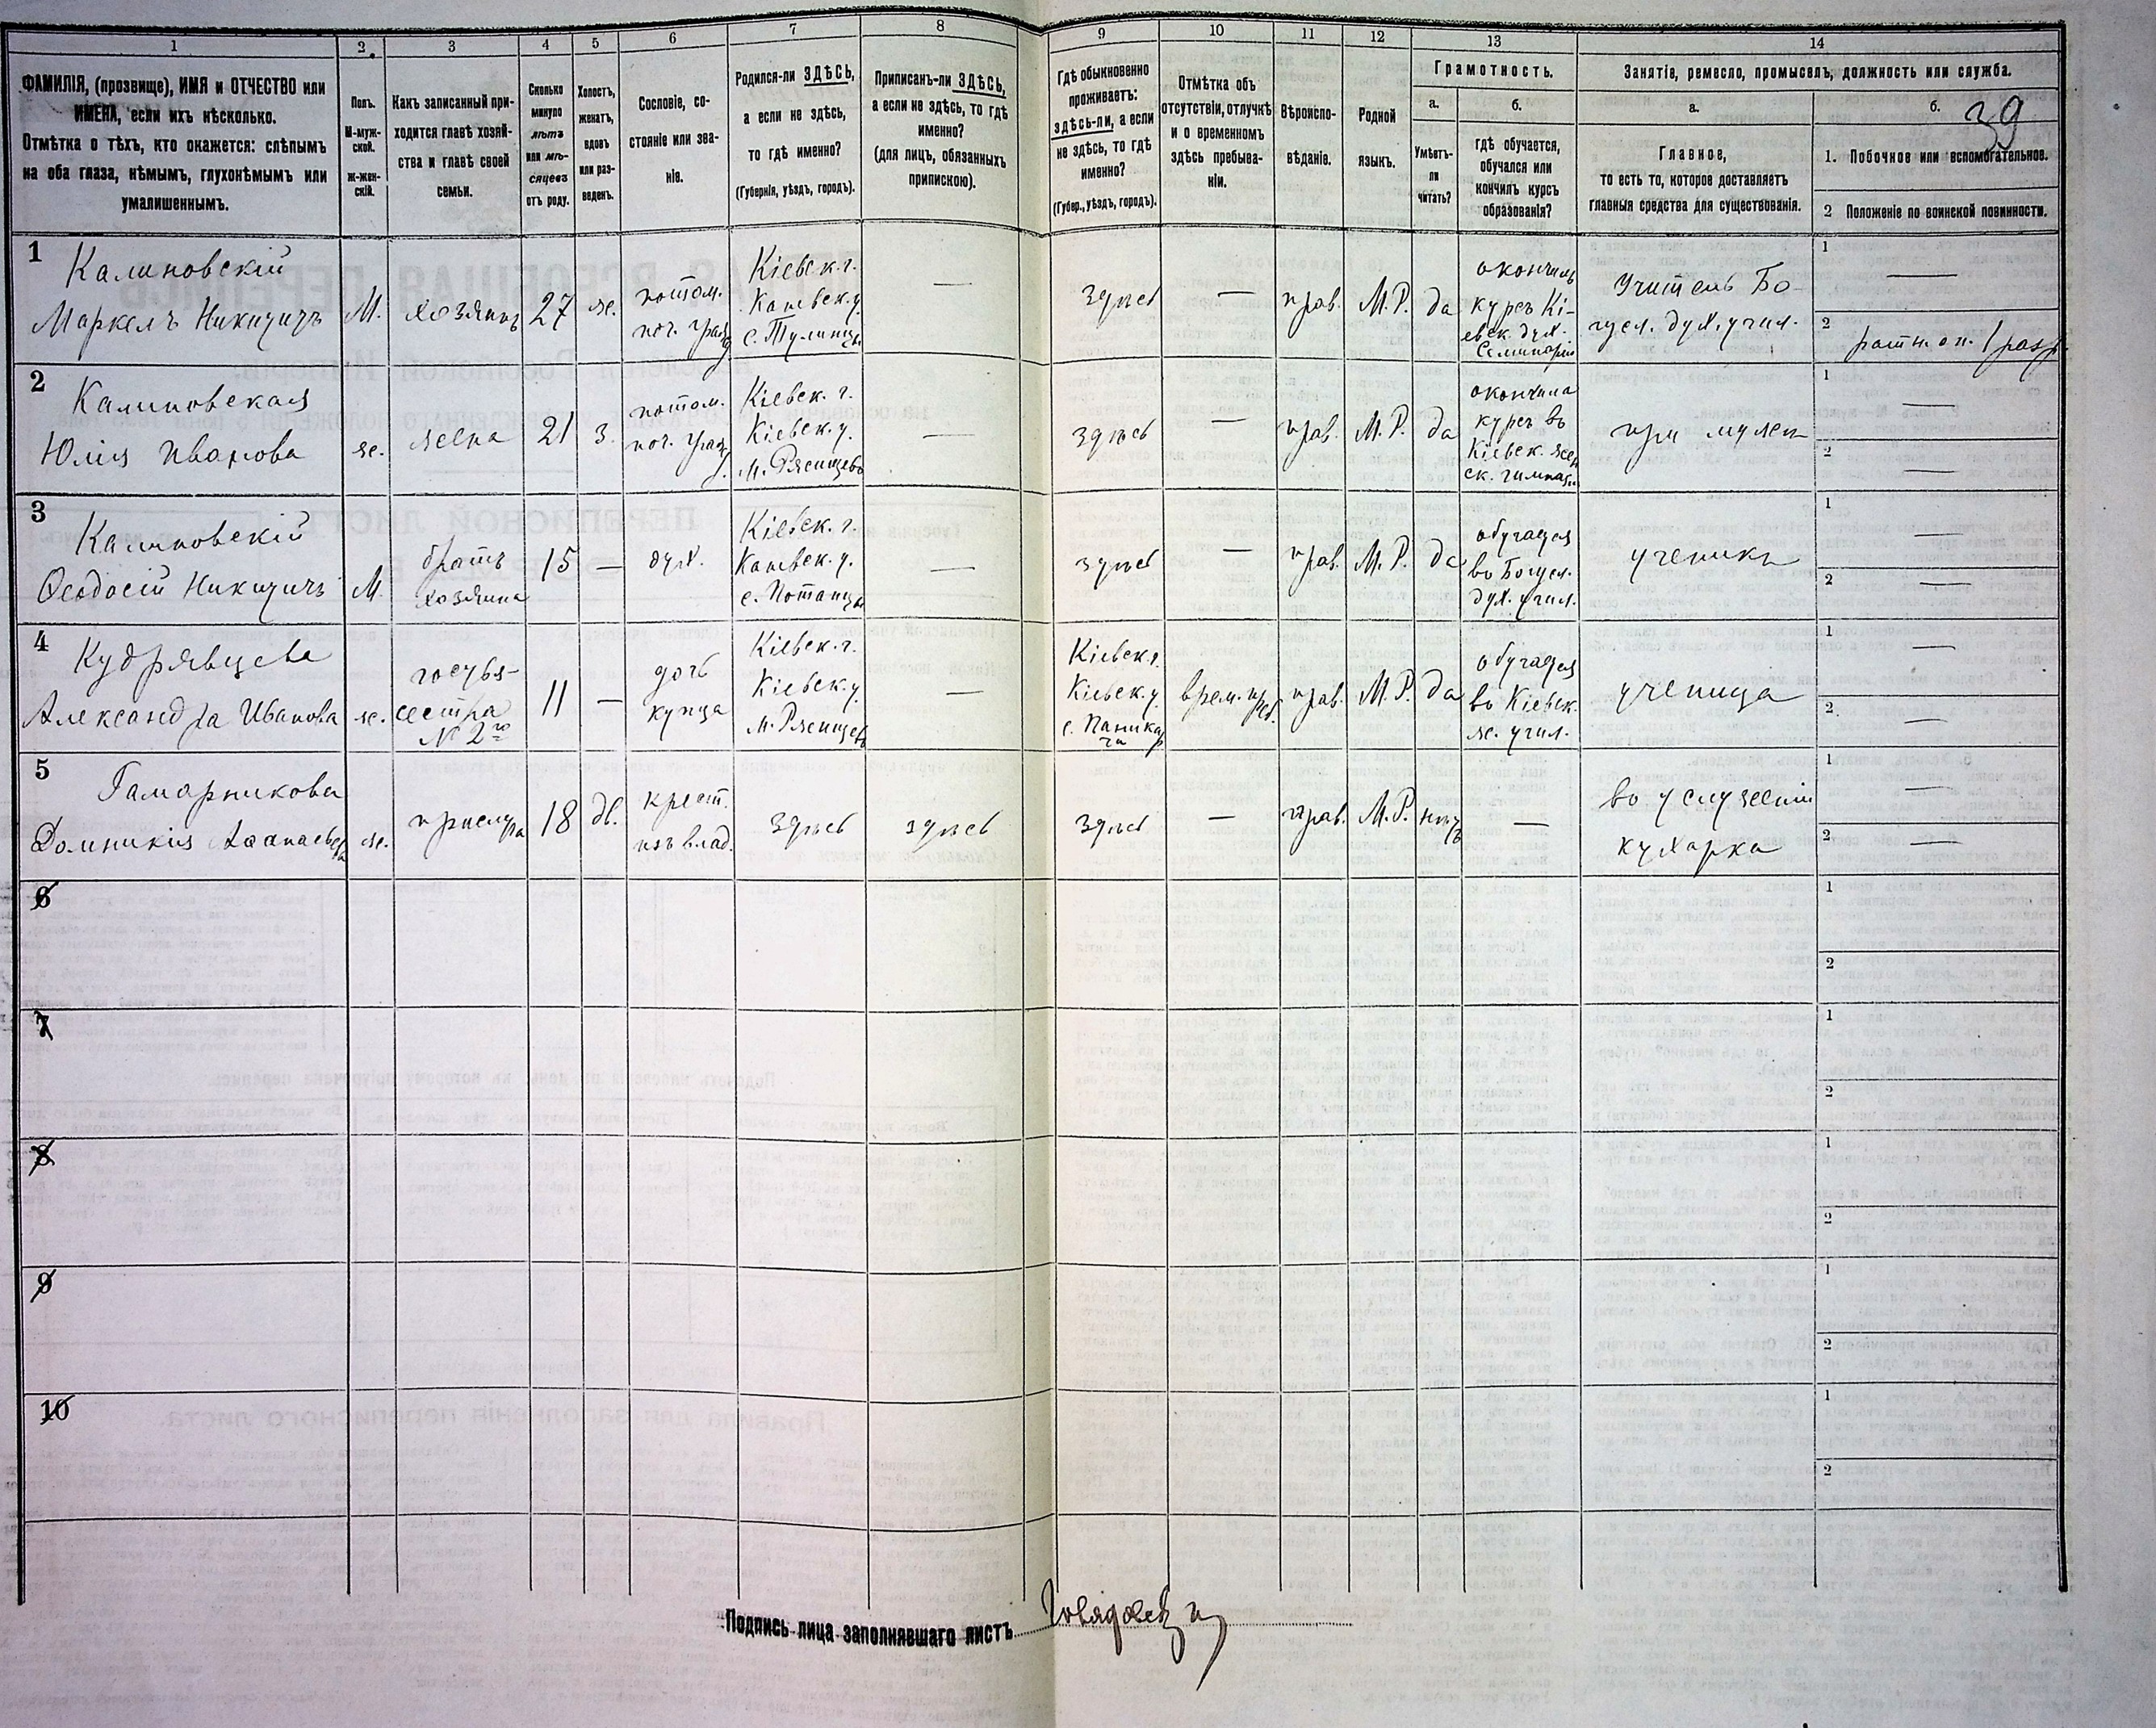 39
1 2. 3 4 5 6 7 8 9 10 11 12 13 14
ФАМИЛІЯ, (прозвище), ИМЯ и ОТЧЕСТВО или
ИМЕНА, если ихъ нѣсколько.
Отмѣтка о тѣхъ, кто окажется: слѣпымъ
на оба глаза, нѣмымъ, глухонѣмымъ или
умалишеннымъ.
Полъ.
М-муж-
ской.
ж-жен-
скій.
Какъ записанный при-
ходится главѣ хозяй-
ства и главѣ своей
семьи.
Сколько
минуло
лѣтъ
или мѣ-
сяцевъ
отъ роду.
Холостъ,
женатъ,
вдовъ
или раз-
веденъ.
Сословіе, со-
стояніе или зва-
ніе.
Родился-ли ЗДѢСЬ,
а если не здѣсь,
то гдѣ именно?
(Губернія, уѣздъ, городъ).
Приписанъ-ли ЗДѢСЬ,
а если не здѣсь, то гдѣ
именно?
(для лицъ, обязанныхъ
припискою).
Гдѣ обыкновенно
проживаетъ:
здѣсь-ли, а если
не здѣсь, то гдѣ
именно?
(Губер., уѣздъ, городъ).
Отмѣтка объ
отсутствіи, отлучкѣ
и о временномъ
здѣсь пребыва-
ніи.
Вѣроиспо-
вѣданіе.
Родной
языкъ.
Грамотность.
а.
Умѣетъ-
ли
читать?
б.
гдѣ обучается,
обучался или
кончилъ курсъ
образованія?
Занятіе, ремесло, промыселъ, должность или служба.
а.
Главное,
то есть то, которое доставляетъ
главныя средства для существованія.
б.
1. Побочное или вспомогательное.
2 Положеніе по воинской повинности.
1
Калиновскій
Маркелъ Никитичъ
М.
хозяинъ
27
же.
потом.
поч. гражд
Кіевск. г.
Каневск. у.
с. Тулинцы
—
здѣсь
—
прав.
М. Р.
да
окончилъ
курсъ Кі-
евск. дух.
Семинаріи
Учитель Бо-
гусл. дух. учил.
1 —
2 ратн. оп. 1 разр.
2
Калиновская
Юлія Иванова
же.
жена
21
з.
потом.
поч. гражд.
Кіевск. г.
Кіевск. у.
м. Ржищевъ
—
здѣсь
—
прав.
М. Р.
да
окончила
курсъ въ
Кіевск. жен
ск. гимназіи
при мужѣ
1 —
2 —
3
Калиновскій
Ѳеодосій Никитичъ
М.
братъ
хозяина
15
—
дух.
Кіевск. г.
Каневск. у.
с. Потапцы
—
здѣсь
—
прав.
М. Р.
да
обучается
въ Богусл.
дух. учил.
ученикъ
1 —
2 —
4
Кудрявцева
Александра Иванова
же.
гостья-
сестра
№ 2го
11
—
дочь
купца
Кіевск. г.
Кіевск. у.
м. Ржищевъ
—
Кіевск. г.
Кіевск. у.
с. Паникар
ча
врем. преб.
прав.
М. Р.
да
обучается
въ Кіевск.
же. учил.
ученица
1 —
2 —
5
Гамарникова
Домникія Аѳанасьева
же.
прислуга
18
дѣ.
крест.
изъ влад.
здѣсь
здѣсь
здѣсь
—
прав.
М. Р.
нѣтъ
—
въ услуженіи
кухарка
1 —
2 —
6
1
2
7
1
2
8
1
2
9
1
2
10
1
2
Подпись лица заполнявшаго листъ